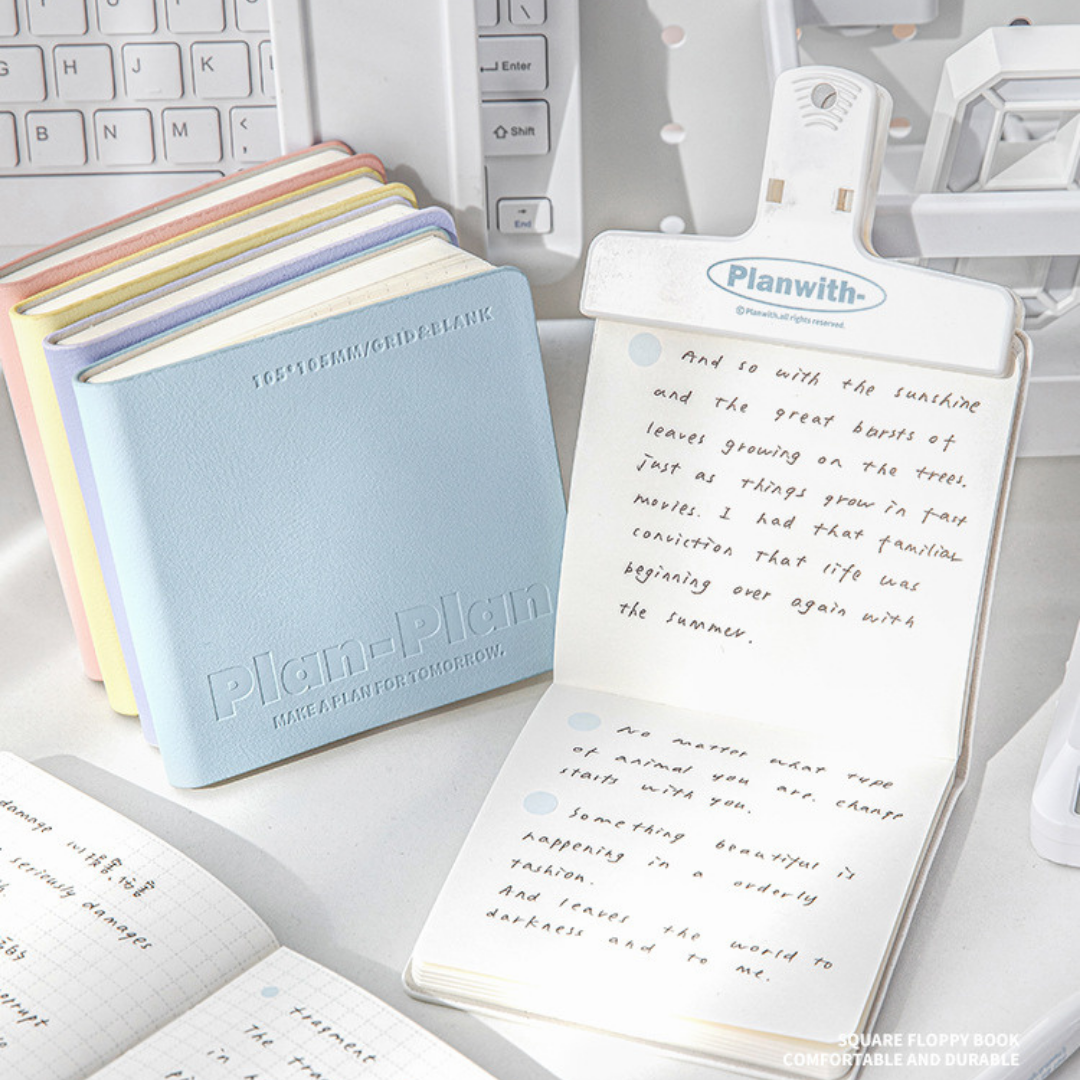 G H J K L
B N M < ,
\
Enter
Shift
End
105*105MM/GRID&BLANK
Plan-Plan
MAKE A PLAN FOR TOMORROW.
Planwith-
©Planwith.all rights reserved.
And so with the sunshine
and the great bursts of
leaves growing on the trees.
just as things grow in fast
movies. I had that familiar
conviction that life was
beginning over again with
the summer.
No matter what type
of animal you are. change
starts with you.
Something beautiful is
happening in a orderly
fashion.
And leaves the world to
darkness and to me.
damage
seriously damages
fragment
The
in
SQUARE FLOPPY BOOK
COMFORTABLE AND DURABLE